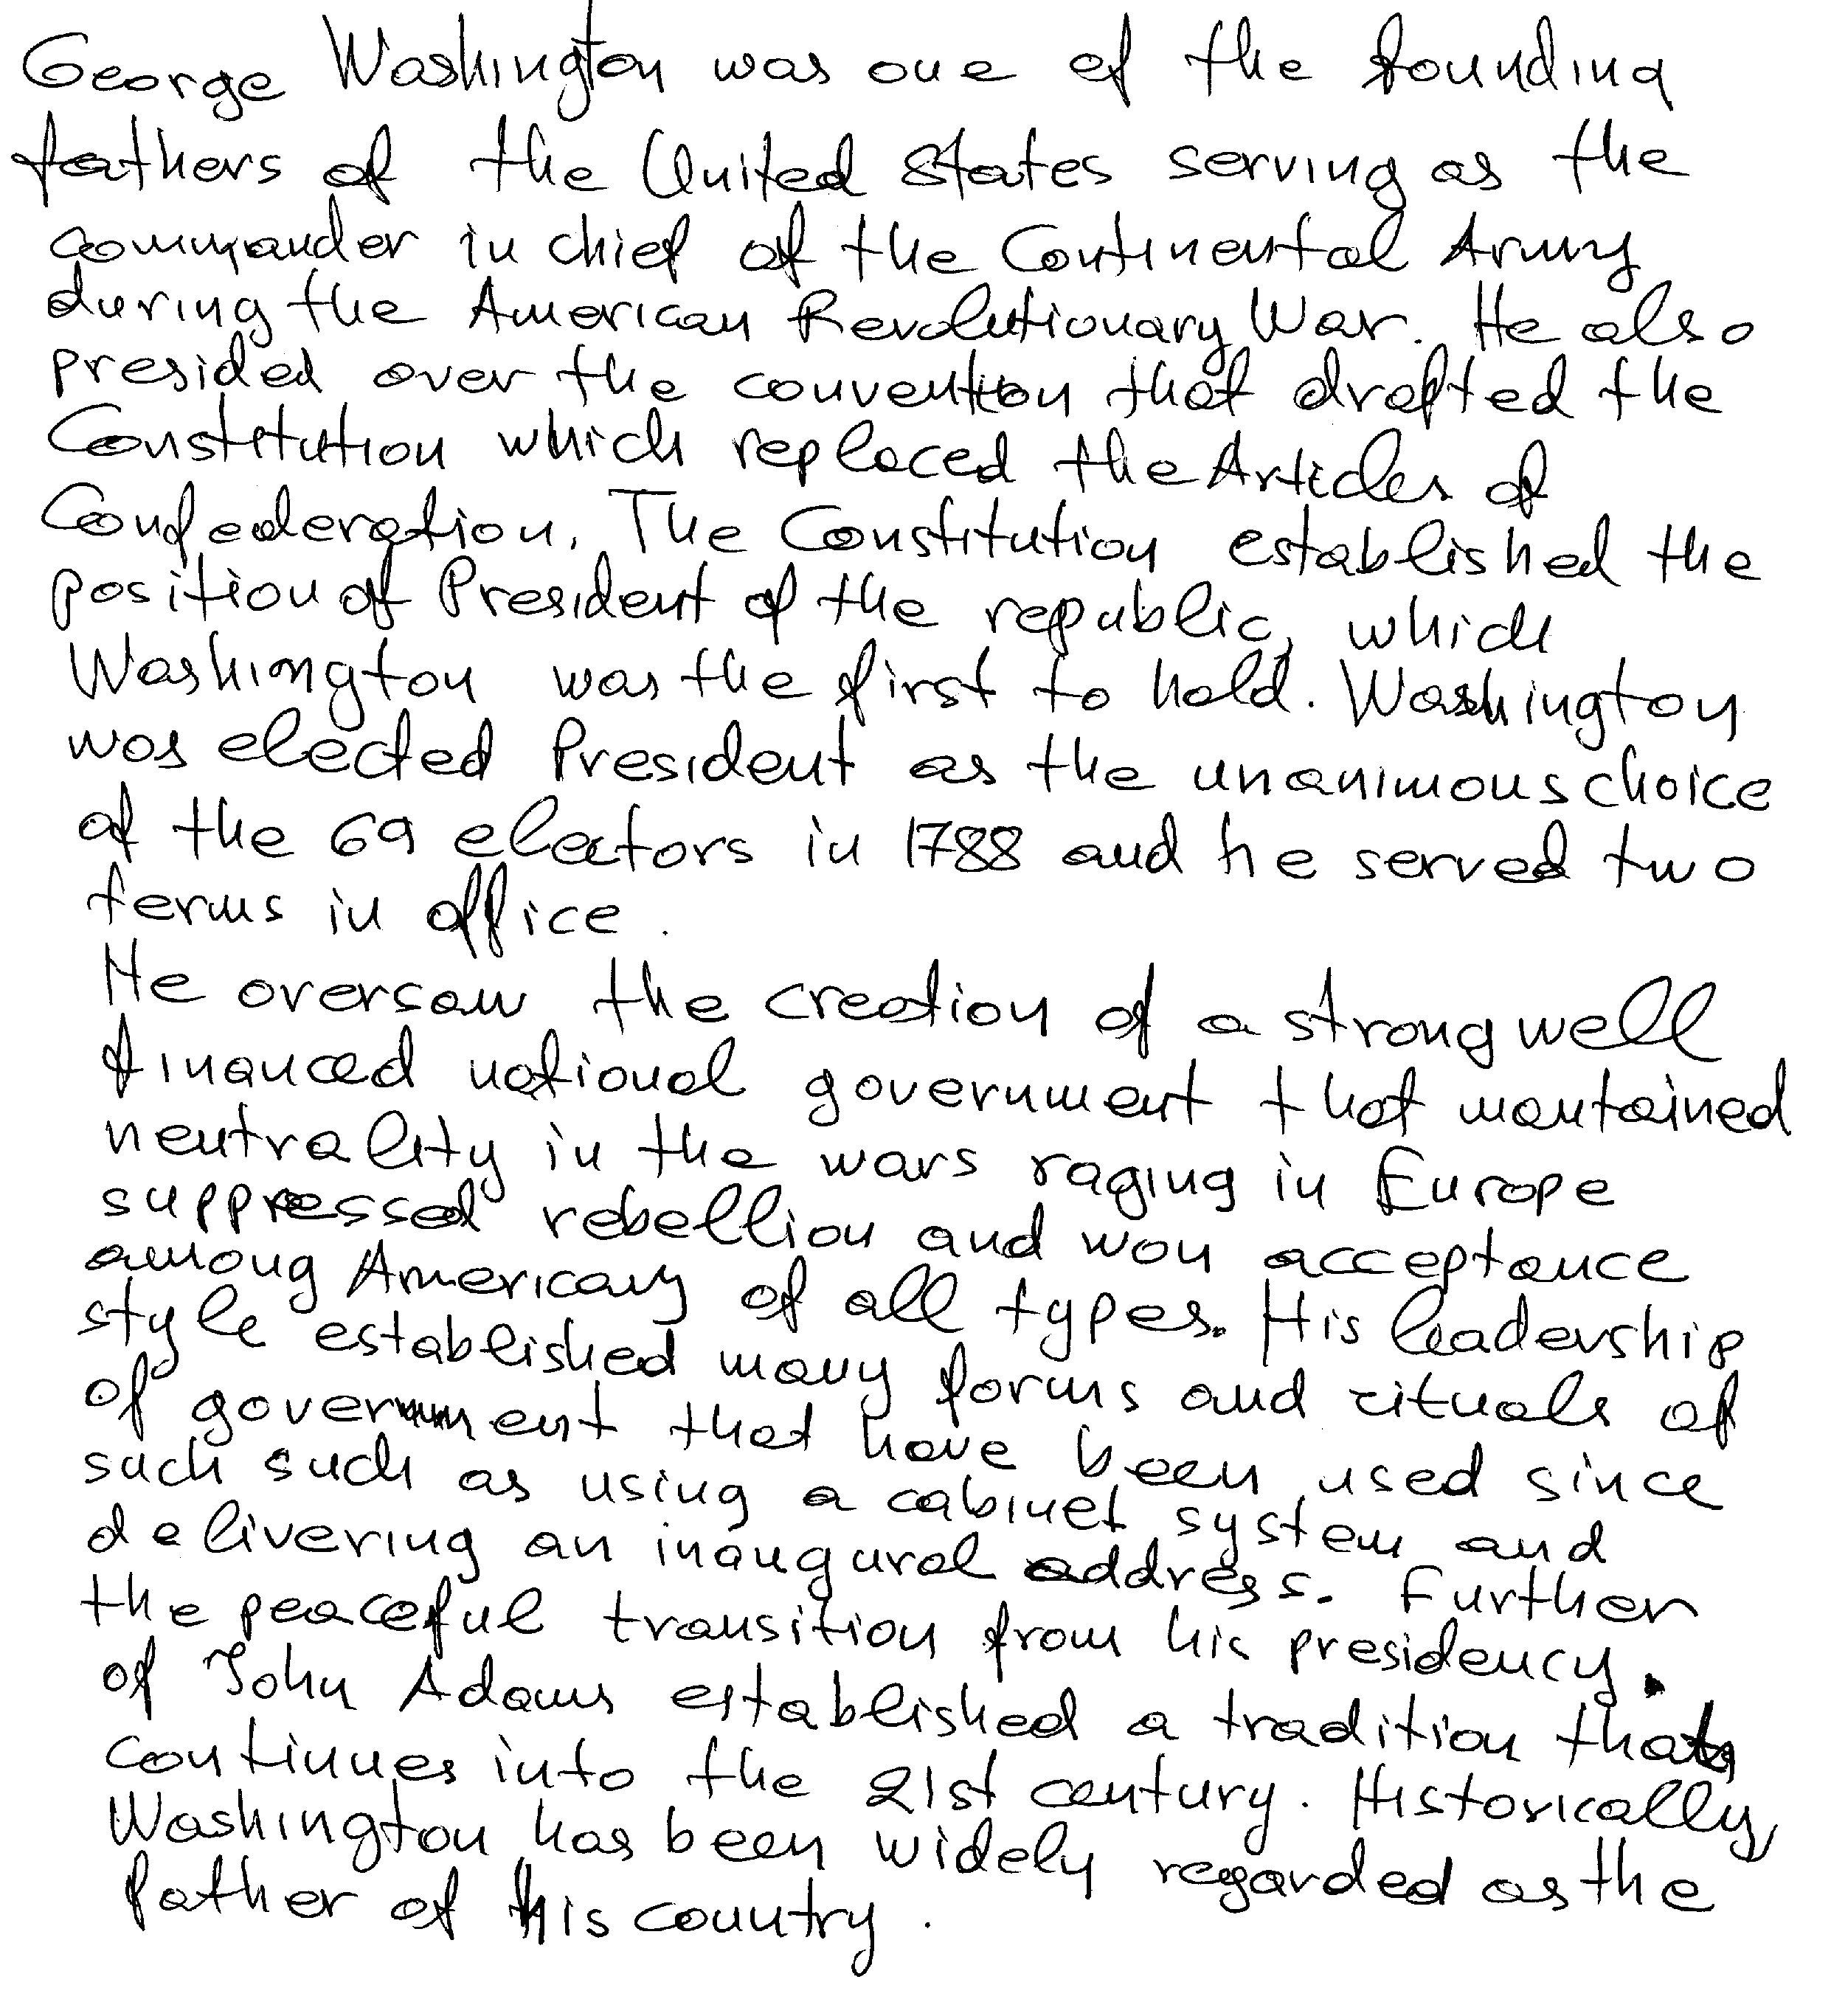 George Washington was one of the founding
fathers of the United States serving as the
commander in chief of the Continental Army
during the American Revolutionary War. He also
presided over the convention that drafted the
Constitution which replaced the Articles of
Confederation. The Constitution established the
position of President of the republic, which
Washington was the first to hold. Washington
was elected President as the unanimous choice
of the 69 electors in 1788 and he served two
terms in office.
He oversaw the creation of a strong well
financed national government that mantained
neutrality in the wars raging in Europe
suppressed rebellion and won acceptance
among Americans of all types. His leadership
style established many forms and rituals of
of government that have been used since
such such as using a cabinet system and
delivering an inaugural address. Further
the peaceful transition from his presidency.
of John Adams established a tradition that
continues into the 21st century. Historically,
Washington has been widely regarded as the
father of his country.